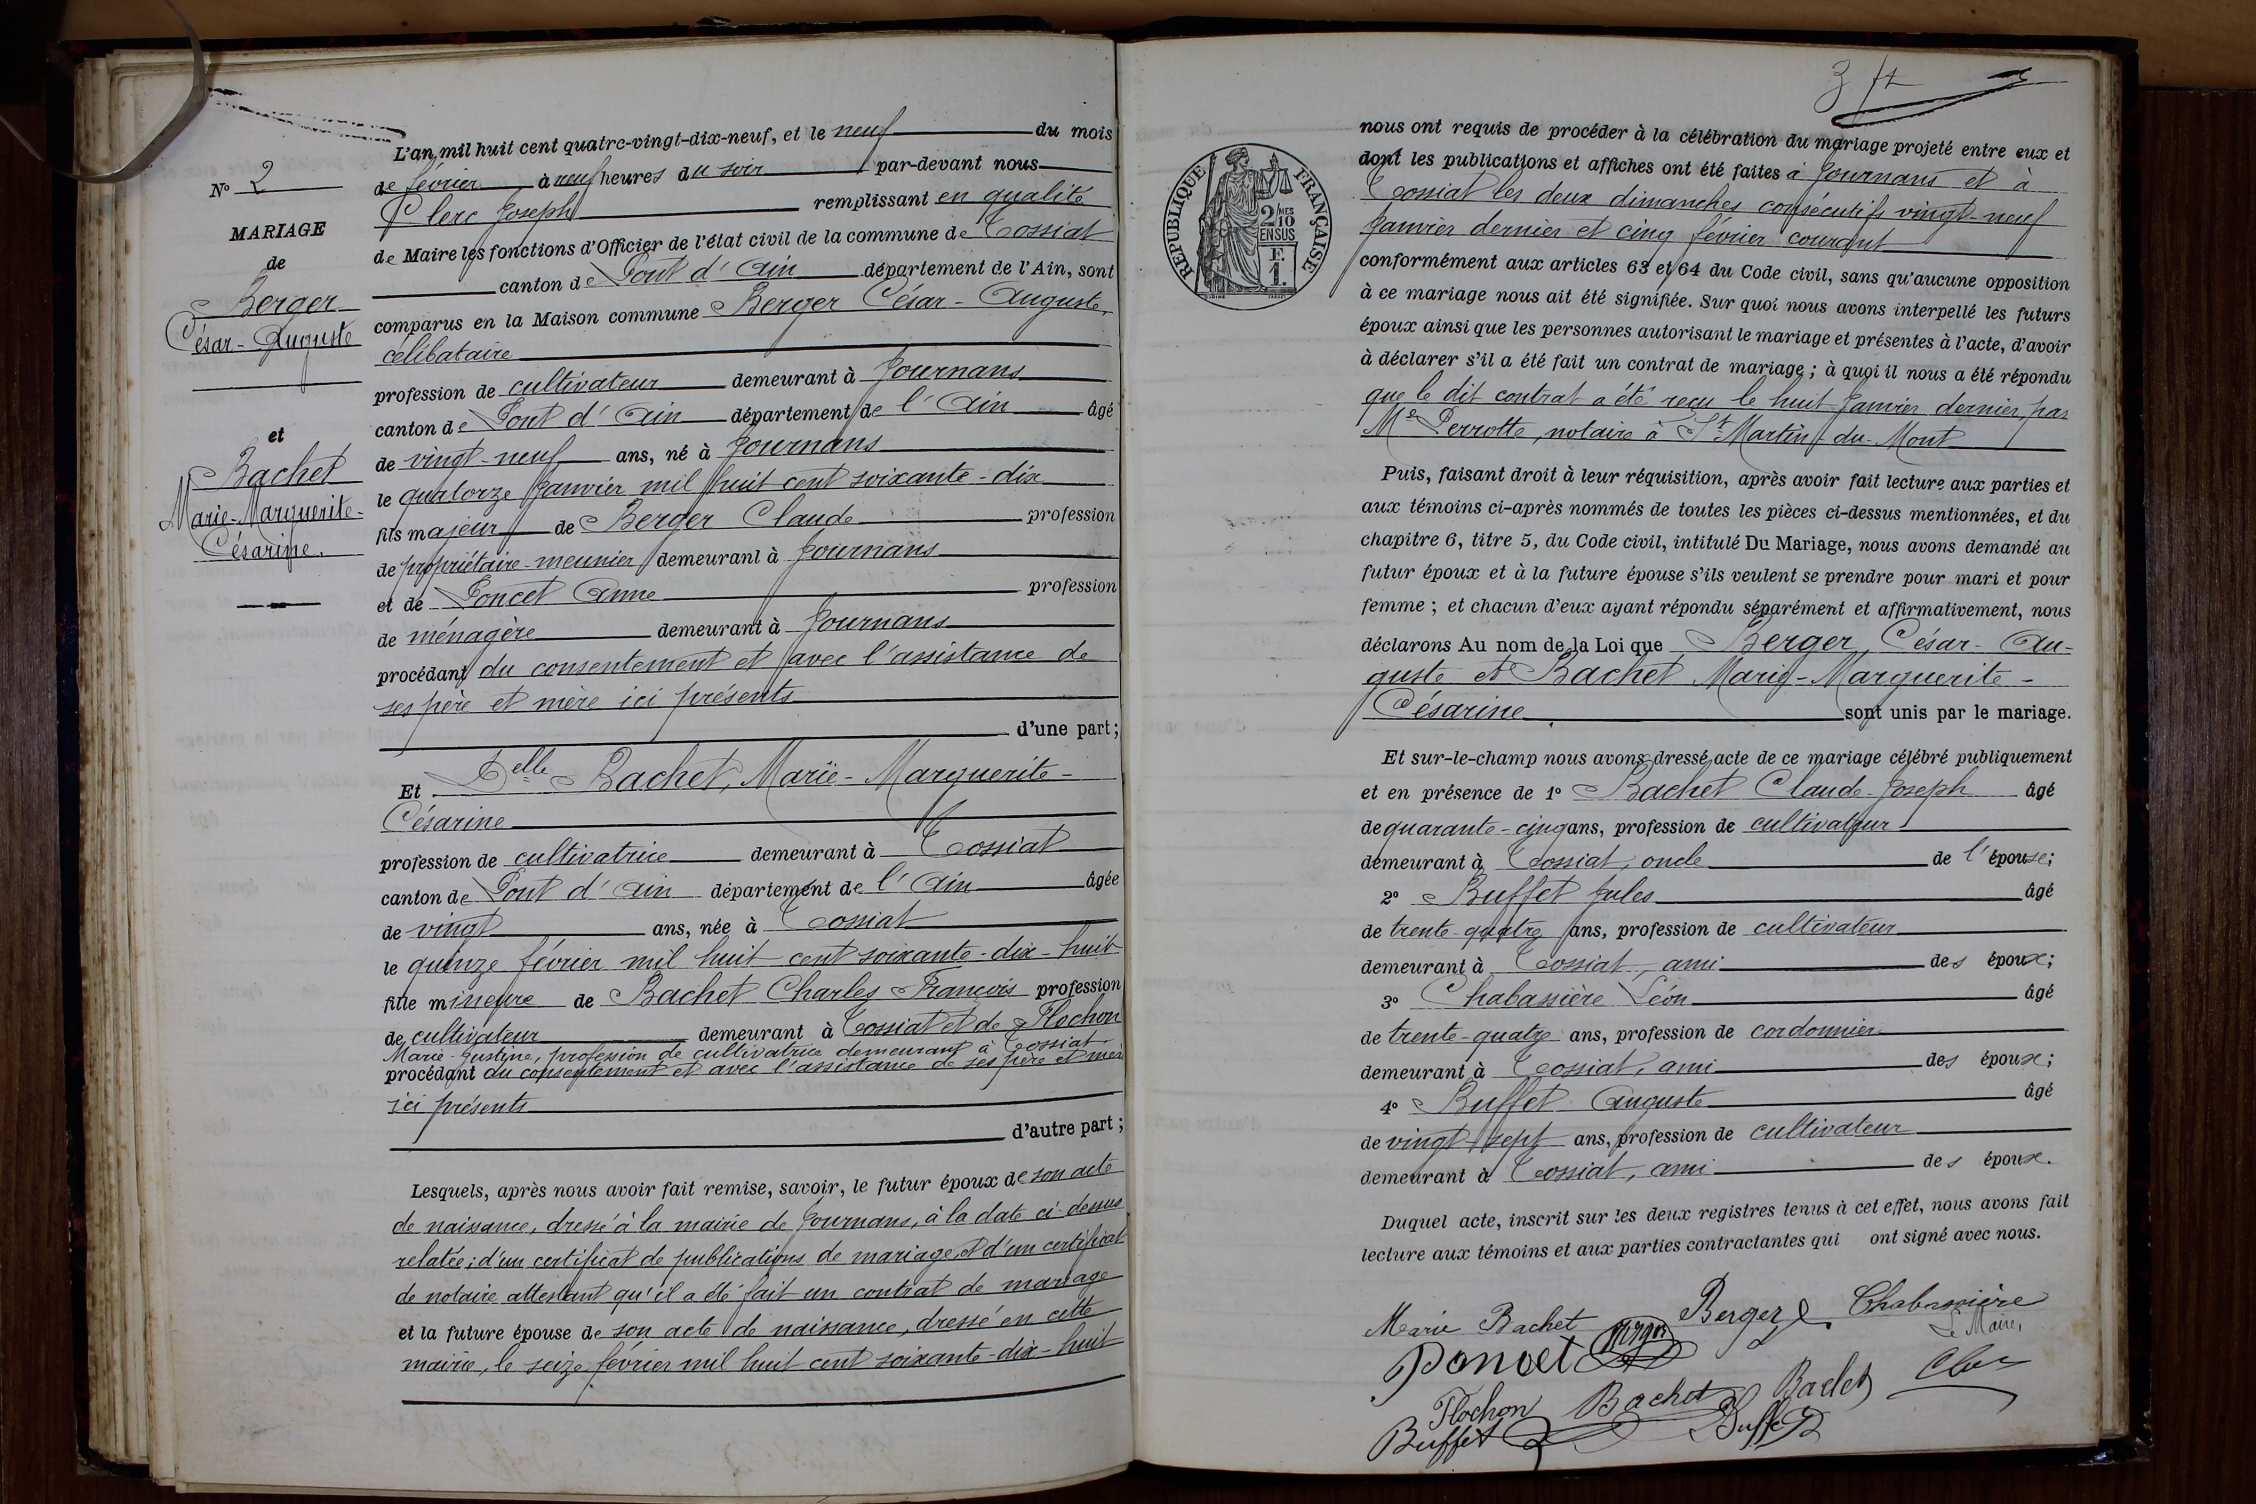 N° 2
MARIAGE
de
Berger
César-Auguste
et
Bachet
Marie-Marguerite-
Césarine.
L'an mil huit cent quatre-vingt-dix-neuf, et le neuf du mois
de février à neuf heures du soir par-devant nous
Clerc Joseph remplissant en qualité
de Maire les fonctions d'Officier de l'état civil de la commune de Tossiat
canton de Pont d'Ain département de l'Ain, sont
comparus en la Maison commune Berger César-Auguste,
célibataire
profession de cultivateur demeurant à Journans
canton de Pont d'Ain département de l'Ain âgé
de vingt-neuf ans, né à Journans
le quatorze Janvier mil huit cent soixante-dix
fils majeur de Berger Claude profession
de propriétaire-meunier demeurant à Journans
et de Poncet Anne profession
de ménagère demeurant à Journans
procédant du consentement et avec l'assistance de
ses père et mère ici présents
d'une part;
Et Delle Bachet, Marie-Marguerite-
Césarine
profession de cultivatrice demeurant à Tossiat
canton de Pont d'Ain département de l'Ain âgée
de vingt ans, née à Tossiat
le quinze février mil huit cent soixante-dix-huit
fille mineure de Bachet Charles François profession
de cultivateur demeurant à Tossiat et de Flochon
Marie-Justine, profession de cultivatrice demeurant à Tossiat
procédant du consentement et avec l'assistance de ses père et mère
ici présents
d'autre part;
Lesquels, après nous avoir fait remise, savoir, le futur époux de son acte
de naissance, dressé à la mairie de Journans, à la date ci-dessus
relatée; d'un certificat de publications de mariage et d'un certificat
de notaire attestant qu'il a été fait un contrat de mariage
et la future épouse de son acte de naissance, dressé en cette
mairie, le seize février mil huit cent soixante-dix-huit
3
RÉPUBLIQUE FRANÇAISE
2/MES
10
EN SUS
F.
1.
nous ont requis de procéder à la célébration du mariage projeté entre eux et
dont les publications et affiches ont été faites à Journans et à
Tossiat les deux dimanches consécutifs vingt-neuf
Janvier dernier et cinq février courant
conformément aux articles 63 et 64 du Code civil, sans qu'aucune opposition
à ce mariage nous ait été signifiée. Sur quoi nous avons interpellé les futurs
époux ainsi que les personnes autorisant le mariage et présentes à l'acte, d'avoir
à déclarer s'il a été fait un contrat de mariage; à quoi il nous a été répondu
que le dit contrat a été reçu le huit Janvier dernier par
Me Perrotte, notaire à St Martin-du-Mont
Puis, faisant droit à leur réquisition, après avoir fait lecture aux parties et
aux témoins ci-après nommés de toutes les pièces ci-dessus mentionnées, et du
chapitre 6, titre 5, du Code civil, intitulé Du Mariage, nous avons demandé au
futur époux et à la future épouse s'ils veulent se prendre pour mari et pour
femme; et chacun d'eux ayant répondu séparément et affirmativement, nous
déclarons Au nom de la Loi que Berger, César-Au-
guste et Bachet Marie-Marguerite-
Césarine sont unis par le mariage.
Et sur-le-champ nous avons dressé acte de ce mariage célébré publiquement
et en présence de 1° Bachet Claude-Joseph âgé
de quarante-cinq ans, profession de cultivateur
demeurant à Tossiat, oncle de l'épouse;
2° Buffet Jules âgé
de trente-quatre ans, profession de cultivateur
demeurant à Tossiat, ami des époux;
3° Chabassière Léon âgé
de trente-quatre ans, profession de cordonnier
demeurant à Tossiat, ami des époux;
4° Buffet Auguste âgé
de vingt sept ans, profession de cultivateur
demeurant à Tossiat, ami des époux.
Duquel acte, inscrit sur les deux registres tenus à cet effet, nous avons fait
lecture aux témoins et aux parties contractantes qui ont signé avec nous.
Marie Bachet Berger Chabassière
Le Maire,
Poncet
Clerc
Flochon Bachet Bachet
Buffet Buffet